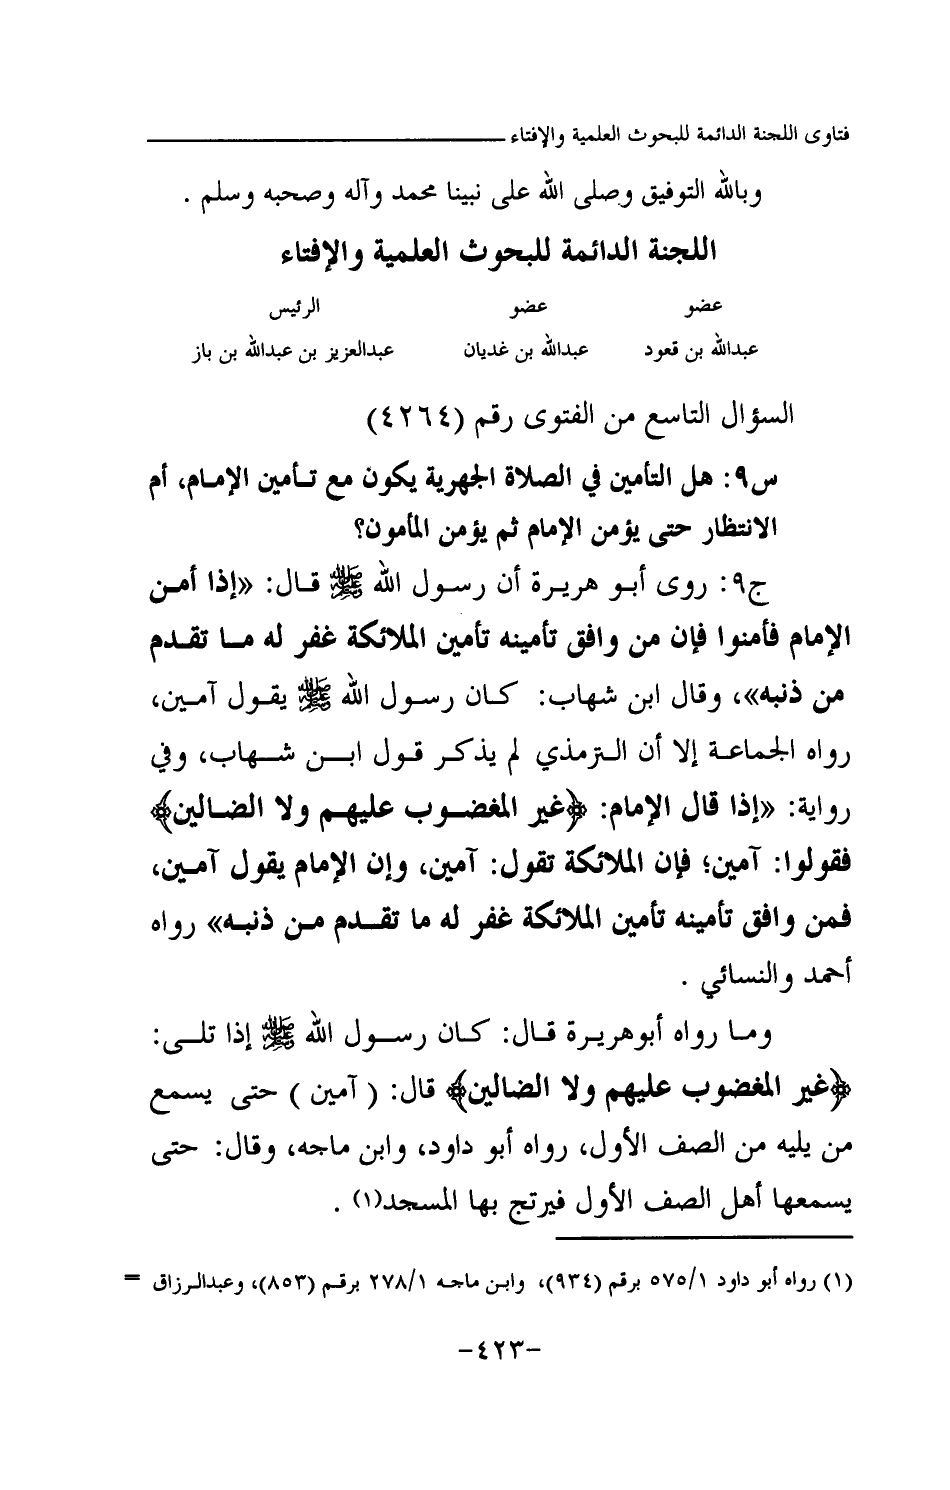 فتاوى اللجنة الدائمة للبحوث العلمية والإفتاء
وبالله التوفيق وصلى الله على نبينا محمد وآله وصحبه وسلم .
اللجنة الدائمة للبحوث العلمية والإفتاء
عضو عضو الرئيس
عبدالله بن قعود عبدالله بن غديان عبدالعزيز بن عبدالله بن باز
السؤال التاسع من الفتوى رقم (٤٢٦٤)
س٩: هل التأمين في الصلاة الجهرية يكون مع تأمين الإمام، أم
الانتظار حتى يؤمن الإمام ثم يؤمن المأمون؟
ج٩: روى أبو هريرة أن رسول الله ﷺ قال: «إذا أمن
الإمام فأمنوا فإن من وافق تأمينه تأمين الملائكة غفر له ما تقدم
من ذنبه»، وقال ابن شهاب: كان رسول الله ﷺ يقول آمين،
رواه الجماعة إلا أن الترمذي لم يذكر قول ابن شهاب، وفي
رواية: «إذا قال الإمام: ﴿غير المغضوب عليهم ولا الضالين﴾
فقولوا: آمين؛ فإن الملائكة تقول: آمين، وإن الإمام يقول آمين،
فمن وافق تأمينه تأمين الملائكة غفر له ما تقدم من ذنبه» رواه
أحمد والنسائي .
وما رواه أبوهريرة قال: كان رسول الله ﷺ إذا تلى:
﴿غير المغضوب عليهم ولا الضالين﴾ قال: ( آمين ) حتى يسمع
من يليه من الصف الأول، رواه أبو داود، وابن ماجه، وقال: حتى
يسمعها أهل الصف الأول فيرتج بها المسجد(١) .
(١) رواه أبو داود ٥٧٥/١ برقم (٩٣٤)، وابن ماجه ٢٧٨/١ برقم (٨٥٣)، وعبدالرزاق =
-٤٢٣-